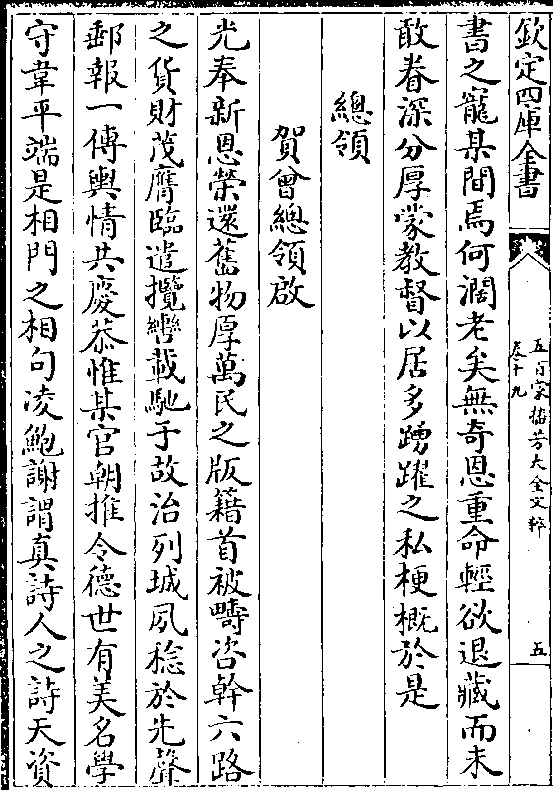 欽定四庫全書
五百家播芳大全文粹
卷十九
五
書之寵某間焉何濶老矣無奇恩重命輕欲退藏而未
敢眷深分厚蒙教督以居多踴躍之私梗概於是
總領
賀曾總領啟
光奉新恩榮還舊物厚萬民之版籍首被疇咨幹六路
之貨財茂膺臨遣攬轡載馳于故治列城夙稔於先聲
郵報一傳輿情共慶恭惟某官朝推令德世有美名學
守韋平端是相門之相句凌鮑謝謂真詩人之詩天資